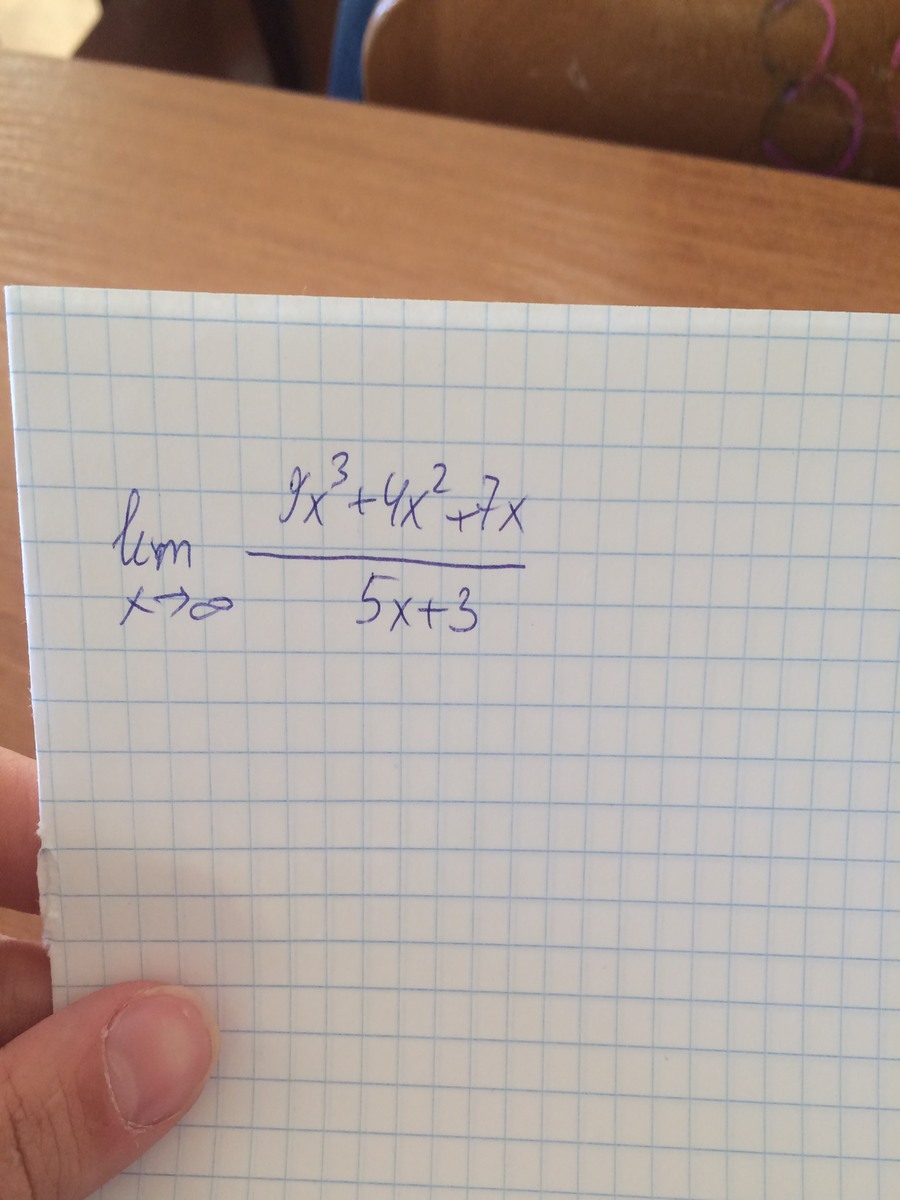 lim 9x³+4x²+7x
x→∞ 5x+3